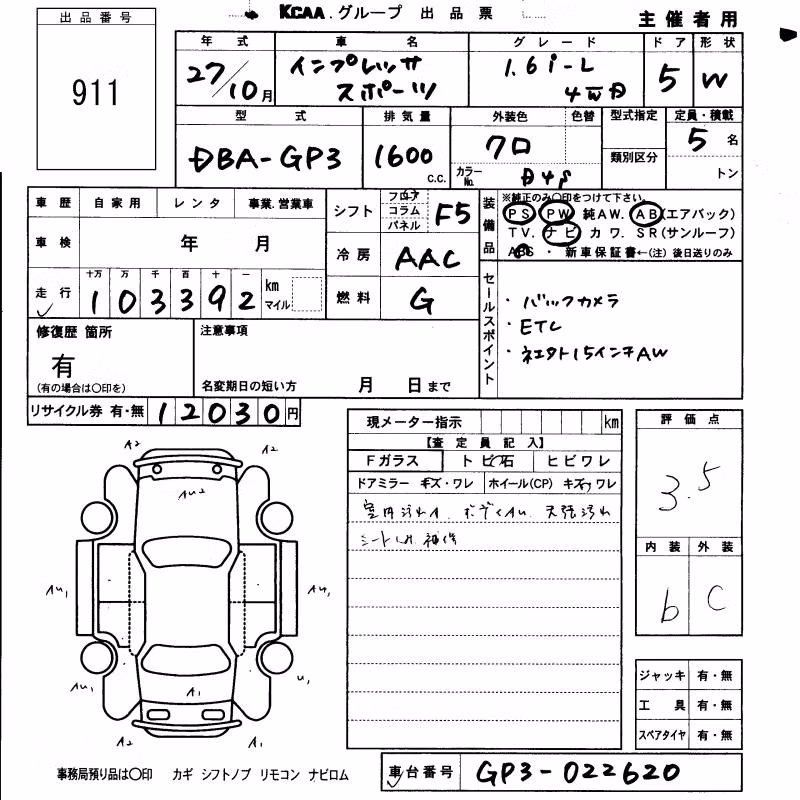 KCAA.グループ 出品票
主催者用
出品番号
911
年式 車名 グレード ドア 形状
27/10月 インプレッサ スポーツ 1.6i-L 4WD 5 W
型式 排気量 外装色 色替 型式指定 定員・積載
DBA-GP3 1600 c.c. クロ 類別区分 5名
カラーNo. D4S トン
車歴 自家用 レンタ 事業.営業車
車検 年 月
走行 十万 万 千 百 十 一
103392 km マイル
シフト フロア コラム パネル F5
冷房 AAC
燃料 G
装備品
※純正のみ○印をつけて下さい。
PS PW 純AW. AB(エアバック)
TV. ナビ カワ. SR(サンルーフ)
ABS ・ 新車保証書←(注)後日送りのみ
セールスポイント
・バックカメラ
・ETC
・社外15インチAW
修復歴 箇所
有
(有の場合は○印を)
注意事項
名変期日の短い方 月 日まで
リサイクル券 有・無 12030円
現メーター指示 km
【査定員記入】
Fガラス トビ石 ヒビワレ
ドアミラー キズ・ワレ ホイール(CP) キズ・ワレ
室内汚れ ボディAU 天張汚れ
シート 補修
評価点
3.5
内装 外装
b C
A2 A2
AU2
AU1 AU1
AU1 A1 U1
A2 A1
ジャッキ 有・無
工具 有・無
スペアタイヤ 有・無
事務局預り品は○印 カギ シフトノブ リモコン ナビロム
車台番号 GP3-022620